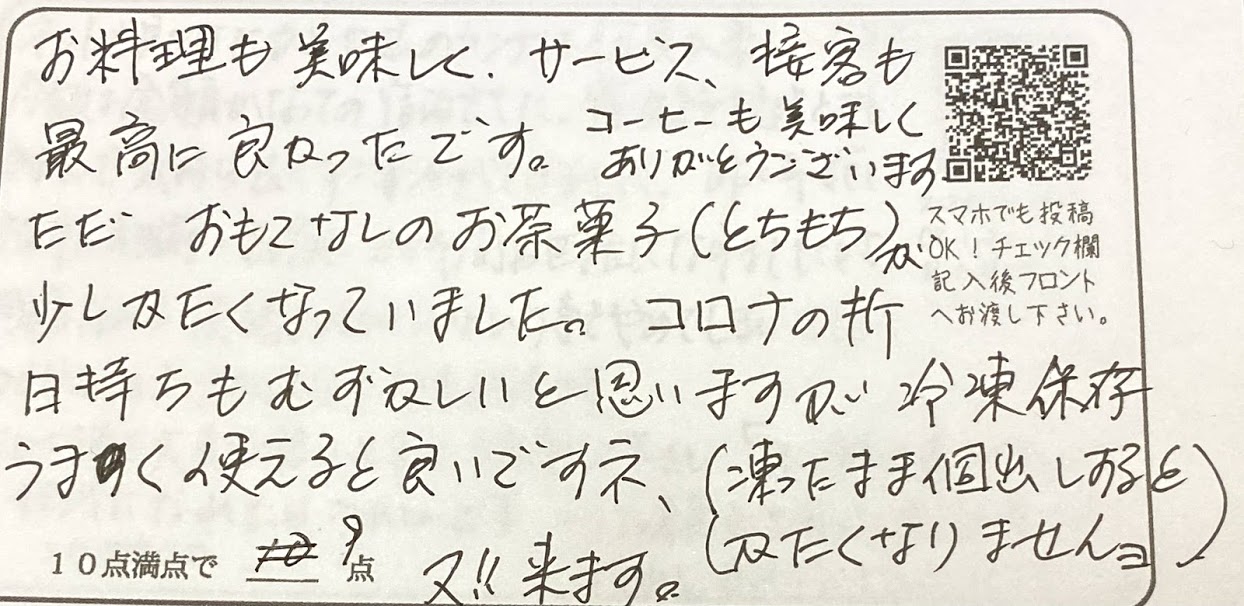 お料理も美味しく、サービス、接客も
最高に良かったです。コーヒーも美味しく
ありがとうございます
ただ おもてなしのお茶菓子(とちもち)が
少しかたくなっていました。コロナの折
日持ちもむずかしいと思いますが 冷凍保存
うまく使えると良いですネ、(凍ったまま個出しすると)
(かたくなりませんョ)
10点満点で 10 9点 又!!来ます。
スマホでも投稿
OK!チェック欄
記入後フロント
へお渡し下さい。